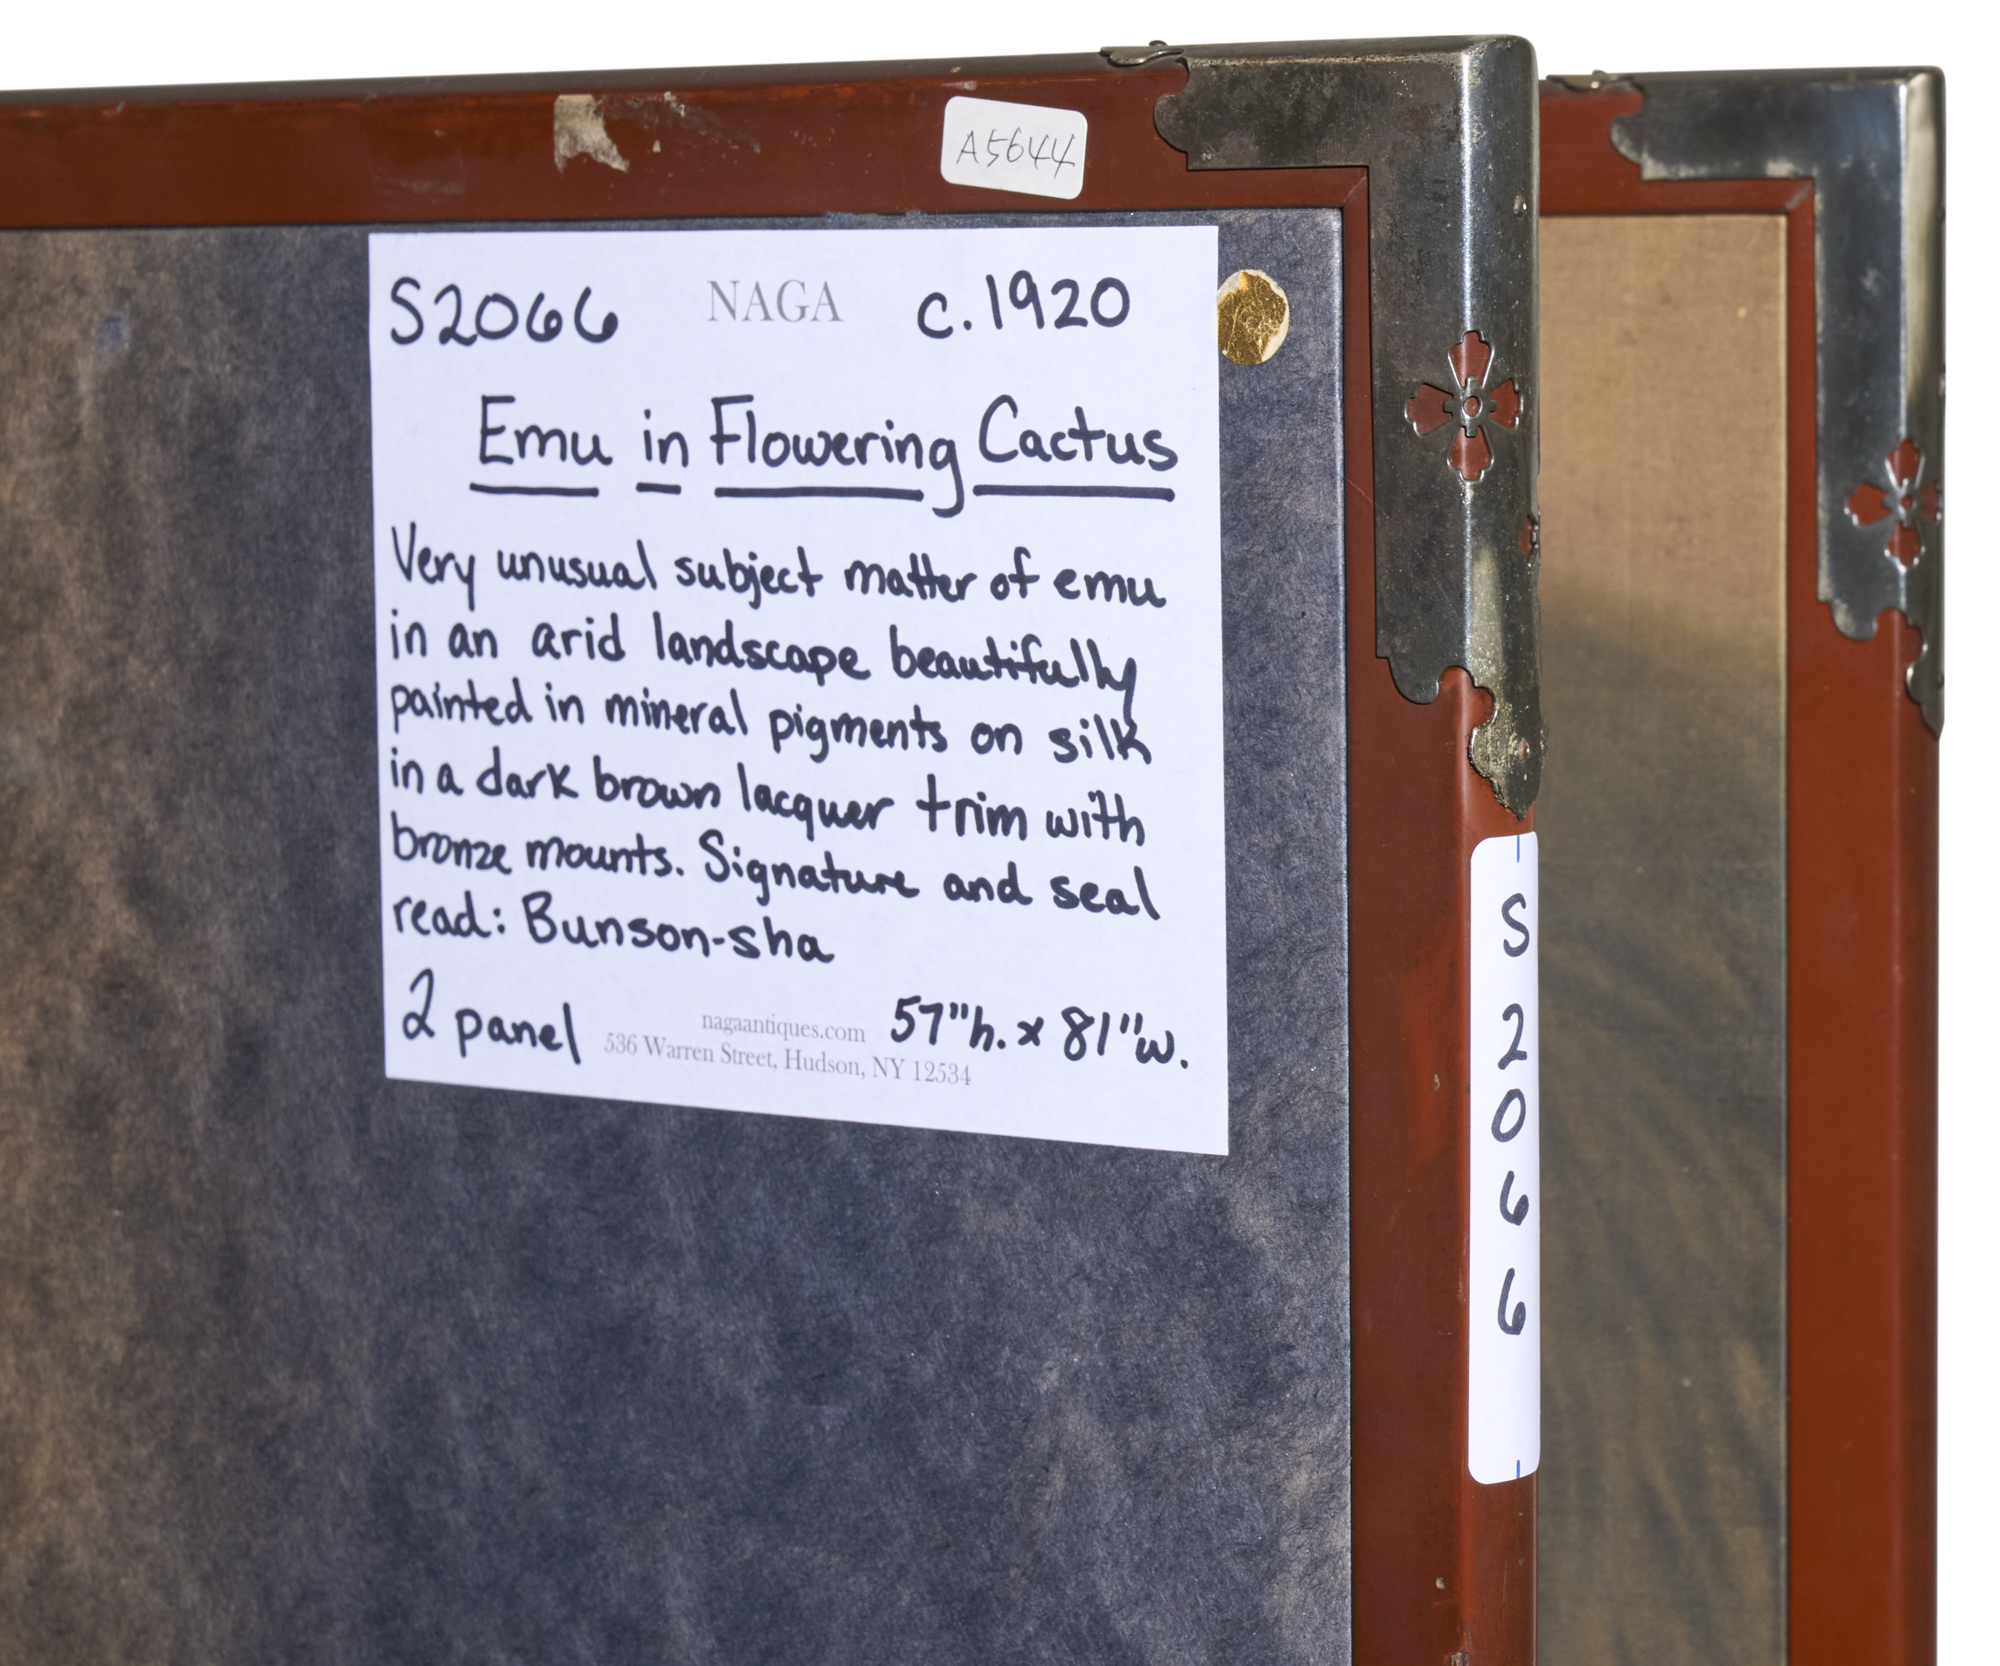 A5644
S2066 NAGA c.1920
Emu in Flowering Cactus
Very unusual subject matter of emu
in an arid landscape beautifully
painted in mineral pigments on silk
in a dark brown lacquer trim with
bronze mounts. Signature and seal
read: Bunson-sha
2 panel nagaantiques.com 57"h. x 81"w.
536 Warren Street, Hudson, NY 12534
S2066